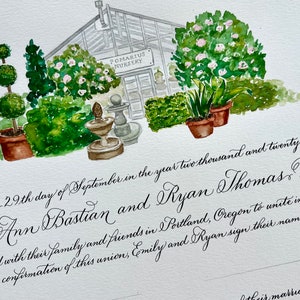 POMARIUS
NURSERY
29th day of September in the year two thousand and twenty
Ann Bastian and Ryan Thomas
with their family and friends in Portland, Oregon to unite in
confirmation of this union, Emily and Ryan sign their name
their marri